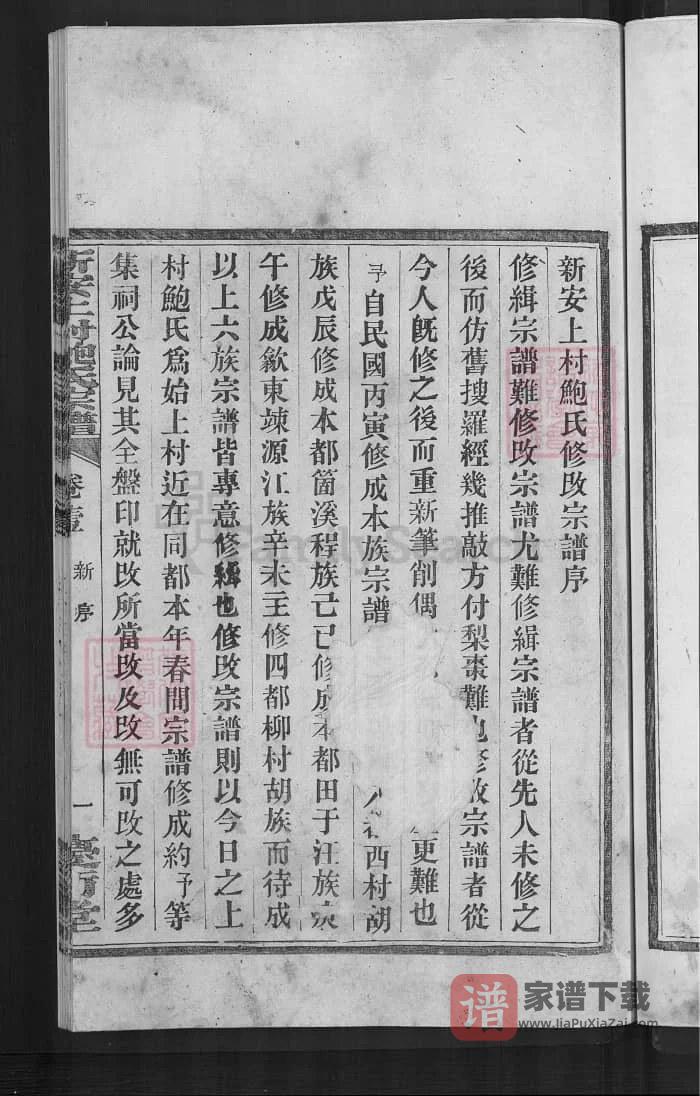 新安上村鮑氏修改宗譜序
修緝宗譜難修改宗譜尤難修緝宗譜者從先人未修之
後而仿舊搜羅經幾推敲方付梨棗難也修改宗譜者從
今人旣修之後而重新筆削偶更難也
予自民國丙寅修成本族宗譜西村胡
族戊辰修成本都箇溪程族己巳修成本都田于汪族庚
午修成歙東竦源江族辛未主修四都柳村胡族而待成
以上六族宗譜皆專意修緝也修改宗譜則以今日之上
村鮑氏爲始上村近在同都本年春間宗譜修成約予等
集祠公論見其全盤印就改所當改及改無可改之處多
新安上村鮑氏宗譜
卷壹
新序
一
家谱下载
www.JiaPuXiaZai.com
谱
FamilySearch